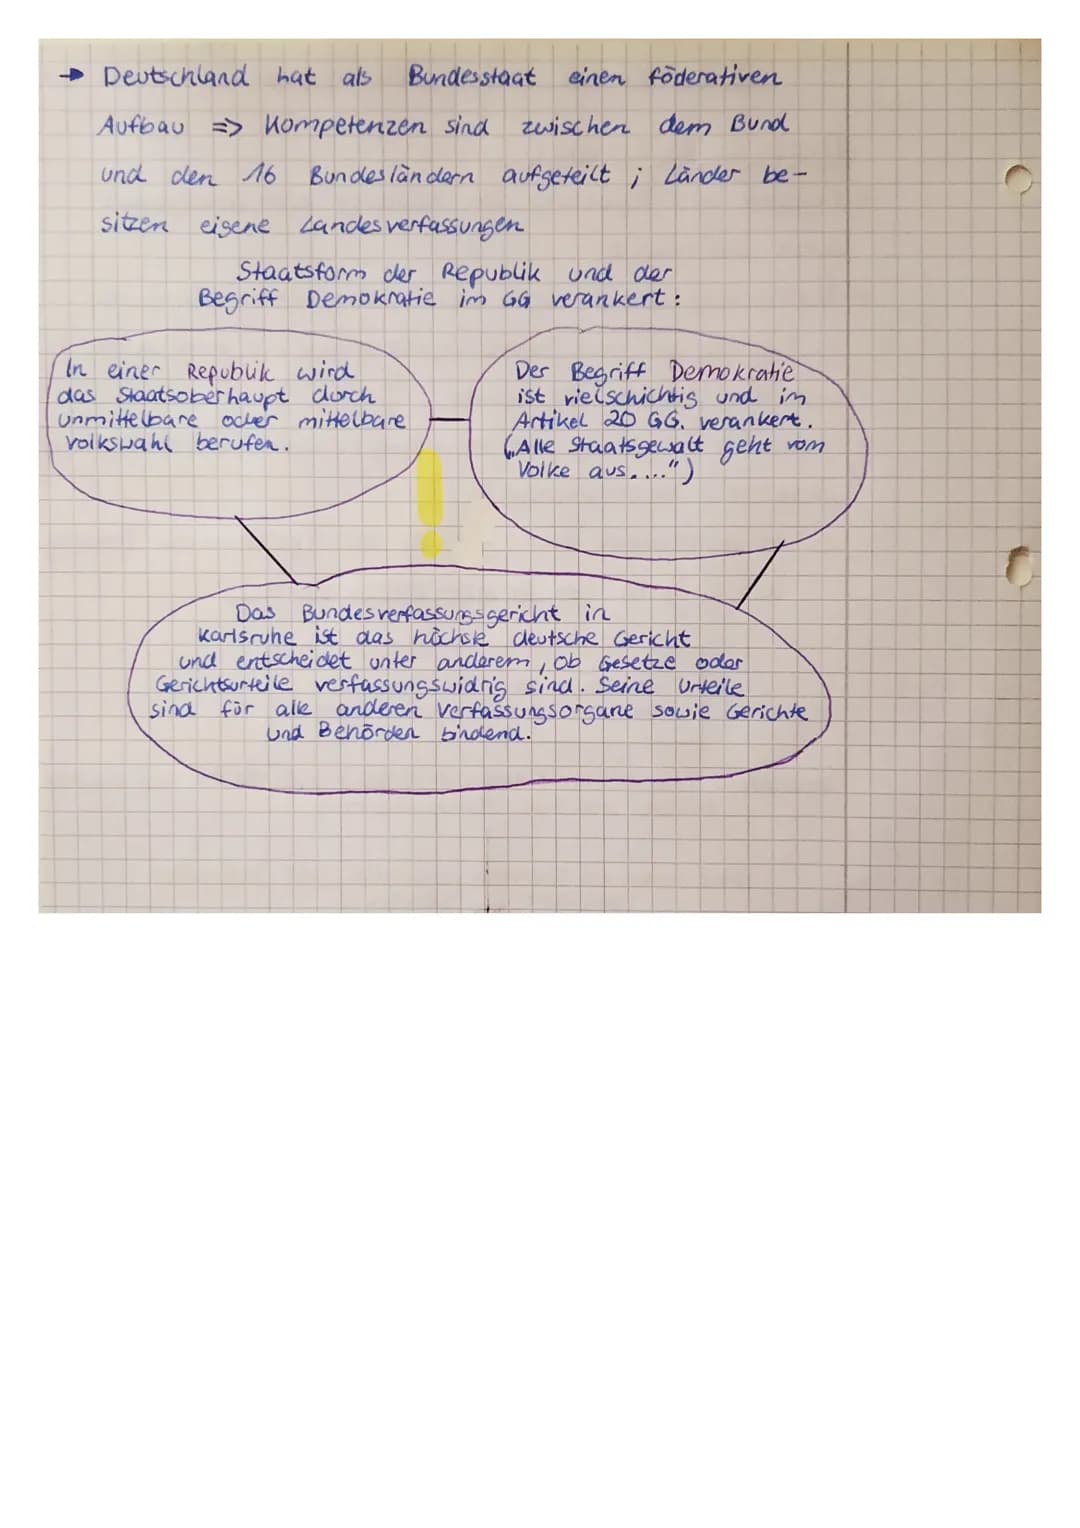 → Deutschland hat als Bundesstaat einen föderativen
Aufbau => Kompetenzen sind zwischen dem Bund
und den 16 Bundesländern aufgeteilt ; Länder be-
sitzen eigene Landesverfassungen
Staatsform der Republik und der
Begriff Demokratie im GG verankert :
In einer Republik wird
das Staatsoberhaupt durch
unmittelbare oder mittelbare
Volkswahl berufen.
Der Begriff Demokratie
ist vielschichtig und im
Artikel 20 GG. verankert.
(„Alle Staatsgewalt geht vom
Volke aus....")
Das Bundesverfassungsgericht in
Karlsruhe ist das höchste deutsche Gericht
und entscheidet unter anderem, ob Gesetze oder
Gerichtsurteile verfassungswidrig sind. Seine Urteile
sind für alle anderen Verfassungsorgane sowie Gerichte
und Behörden bindend.